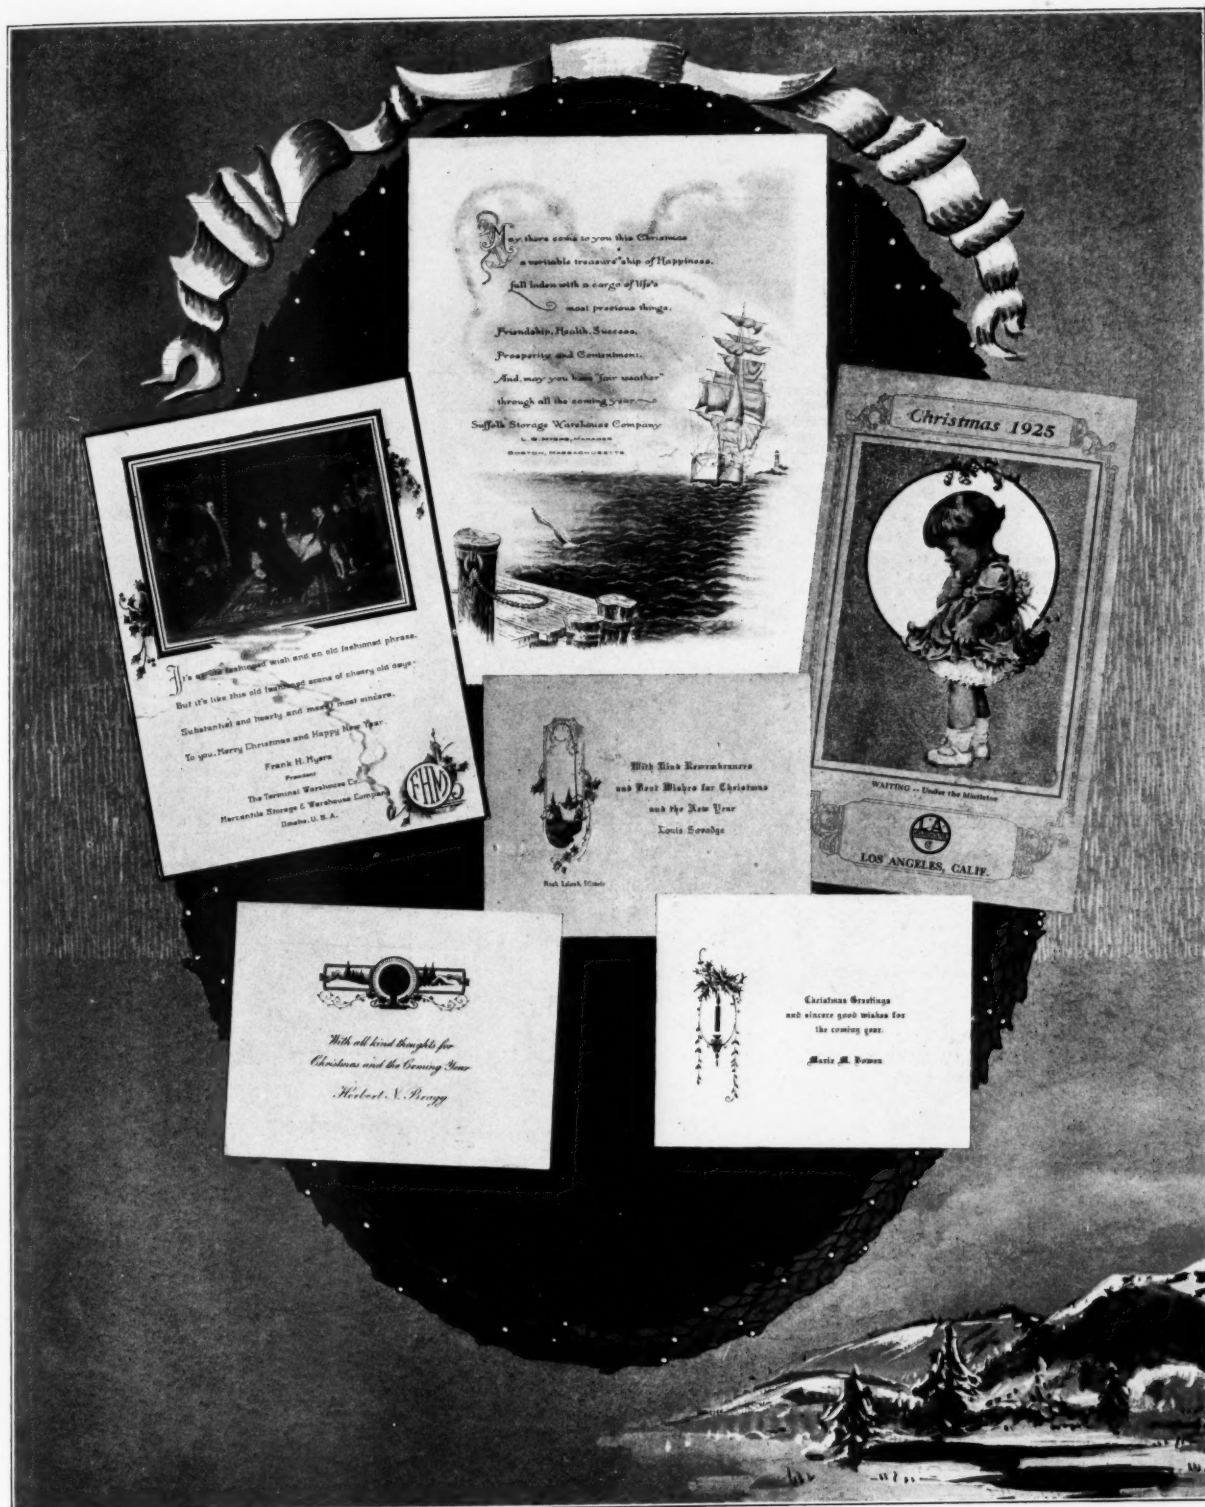 May there come to you this Christmas
a veritable treasure ship of Happiness,
full laden with a cargo of life's
most precious things,
Friendship, Health, Success,
Prosperity and Contentment,
And, may you have "fair weather"
through all the coming year
Suffolk Storage Warehouse Company
L. G. Myers, Manager
Boston, Massachusetts
It's an old fashioned wish and an old fashioned phrase,
But it's like this old fashioned scene of cheery old days-
Substantial and hearty and most sincere,
To you, Merry Christmas and Happy New Year.
Frank H. Myers
President
The Terminal Warehouse Co.
Mercantile Storage & Warehouse Company
Omaha, U.S.A.
FHM
Christmas 1925
WAITING -- Under the Mistletoe
LA
Co
LOS ANGELES, CALIF.
With Kind Remembrances
and Best Wishes for Christmas
and the New Year
Louis Sovadge
Rock Island, Illinois
With all kind thoughts for
Christmas and the Coming Year
Herbert N. Bragg
Christmas Greetings
and sincere good wishes for
the coming year.
Marie M. Bowen